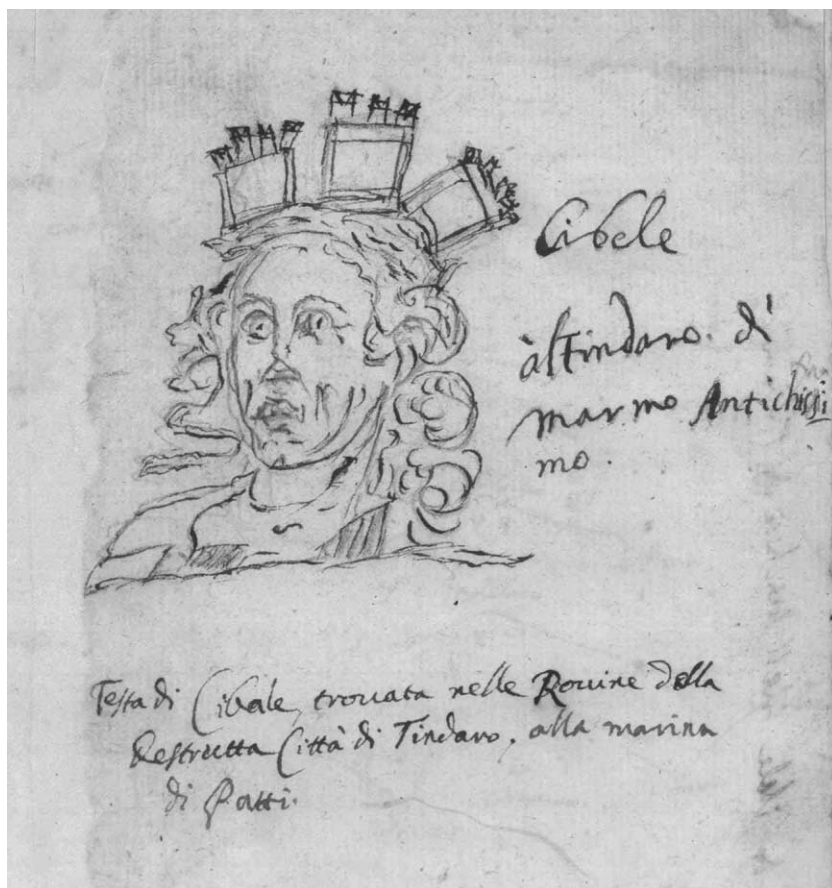 Cibele
àlTindaro. di
marmo Antichissi
mo.
Testa di Cibale, trouata nelle Rouine della
destrutta Città di Tindaro, alla marina
di Patti.